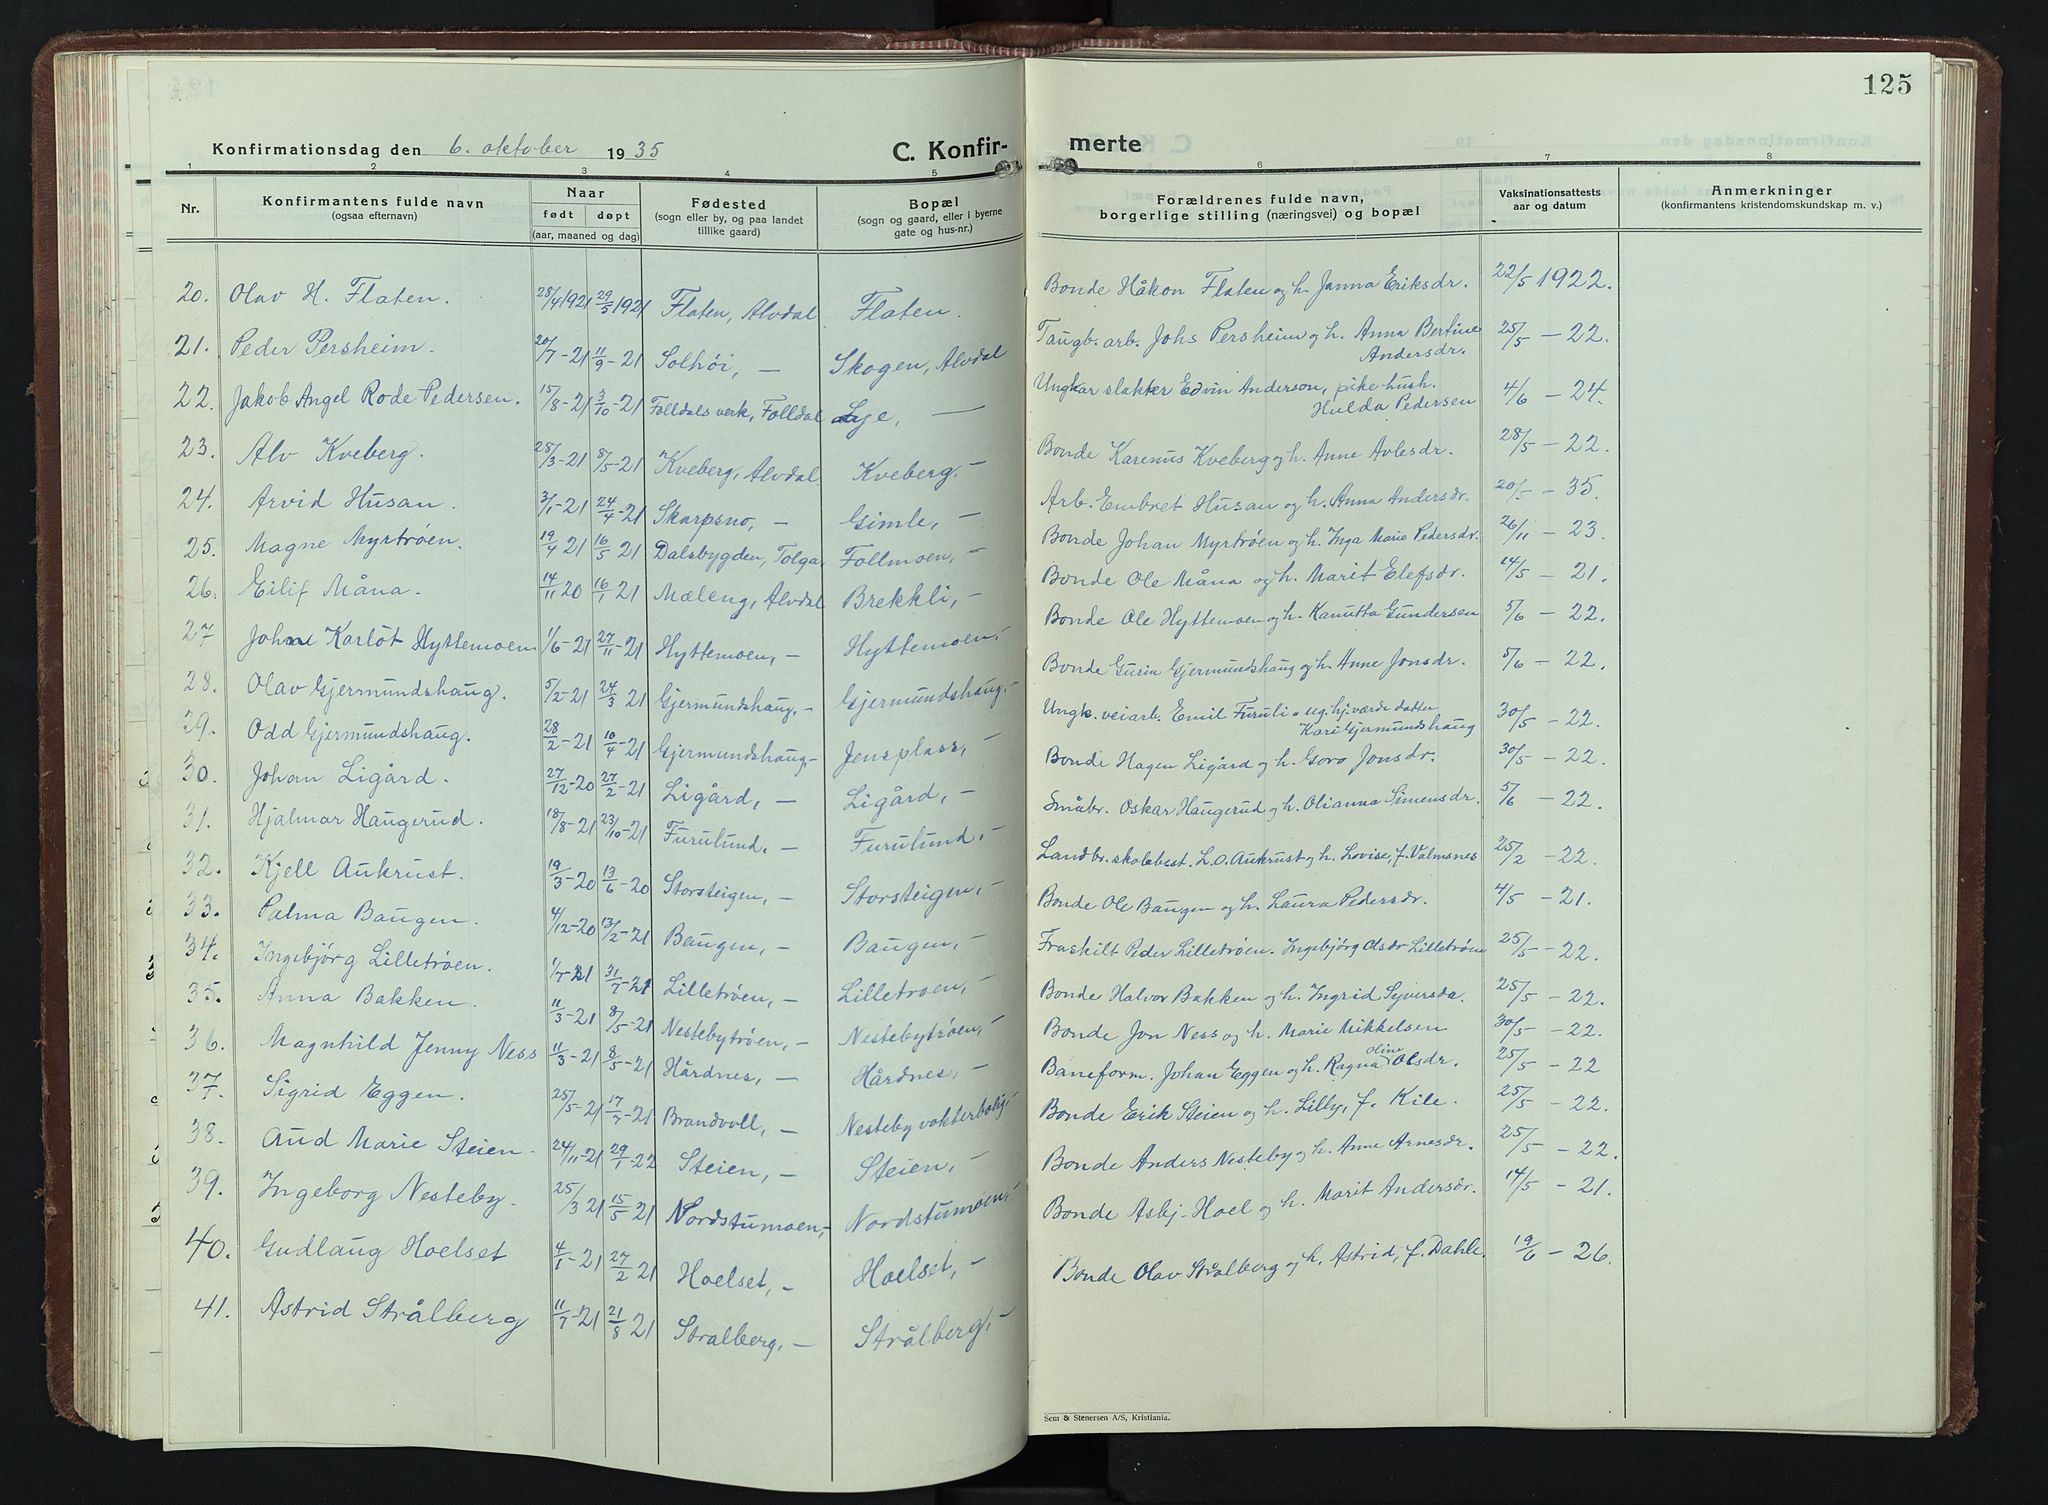 125
Konfirmationsdag den 6. oktober 1935
C. Konfir-
merte
1 2 3 4 5 6 7 8
Nr.
Konfirmantens fulde navn
(ogsaa efternavn)
Naar
født døpt
(aar, maaned og dag)
Fødested
(sogn eller by, og paa landet
tillike gaard)
Bopæl
(sogn og gaard, eller i byerne
gate og hus-nr.)
Forældrenes fulde navn,
borgerlige stilling (næringsvei) og bopæl
Vaksinationsattests
aar og datum
Anmerkninger
(konfirmantens kristendomskundskap m. v.)
20. Olav H. Flaten. 28/4 1921 29/5 1921 Flaten, Alvdal Flaten. Bonde Håkon Flaten og h. Janna Eriksdr. 22/5 1922.
21. Peder Persheim. 20/7-21 11/9-21 Solhøi, — Skogen, Alvdal Taugb. arb. Johs Persheim og h. Anna Bertine 25/5 - 22.
Andersdr.
22. Jakob Angel Rode Pedersen. 15/8-21 3/10-21 Folldals verk, Folldal Lye, — Ungkar slakter Edvin Anderson, pike hush. 4/6 - 24.
Hulda Pedersen
23. Alv Kveberg. 28/3-21 8/5-21 Kveberg, Alvdal Kveberg, — Bonde Karenus Kveberg og h. Anne Avlesdr. 28/5 - 22.
24. Arvid Husan. 3/1-21 24/4-21 Skarpsno, — Gimle, — Arb. Embret Husan og h. Anna Andersdr. 20/5 - 35.
25. Magne Myrtrøen. 19/4 21 16/5 21 Dalsbygden, Tolga. Follmoen, — Bonde Johan Myrtrøen og h. Inga Marie Pedersdr. 26/11 - 23.
26. Eilif Måna. 14/11 20 16/1 21 Mæleng, Alvdal Brekkli, — Bonde Ole Måna og h. Marit Elefsdr. 14/5 - 21.
27 Johne Karlot Hyttemoen 1/6-21 27/11-21 Hyttemoen, — Hyttemoen, — Bonde Ole Hyttemoen og h. Kanutta Gundersen 5/6 - 22.
28. Olav Gjermundshaug. 5/2-21 24/3 21 Gjermundshaug, — Gjermundshaug, — Bonde Gurin Gjermundshaug og h. Anne Jonsdr. 5/6 - 22.
29. Odd Gjermundshaug. 28/2-21 10/4-21 Gjermundshaug — Jensplass, — Ungk. veiarb. Emil Furuli o ug. hj. værde datter 30/5 - 22.
Kari Gjermundshaug
30. Johan Ligård. 27/12-20 27/2-21 Ligård, — Ligård, — Bonde Hagen Ligård og h. Goro Jonsdr. 30/5 - 22.
31. Hjalmar Haugerud. 18/8-21 23/10-21 Furulund. — Furulund. — Småbr. Oskar Haugerud og h. Olianna Simensdr. 5/6 - 22.
32. Kjell Aukrust. 19/3-20 13/6-20 Storsteigen, — Storsteigen, — Landbr. skolebest. L. O. Aukrust og h. Lovise, f. Valmsnes 25/2 - 22.
33. Palma Baugen. 4/12-20 13/2-21 Baugen, — Baugen, — Bonde Ole Baugen og h. Laura Pedersdr. 4/5 - 21.
34. Ingebjørg Lilletrøen. 1/7-21 31/7-21 Lilletrøen, — Lilletroen, — Fraskilt Peder Lilletrøen. Ingebjørg Olsdr Lilletrøen 25/5 - 22.
35. Anna Bakken. 11/3-21 8/5-21 Nestebytrøen, — Nestebytrøen, — Bonde Halvor Bakken og h. Ingrid Syversda. 25/5 - 22.
36. Magnhild Jenny Ness 11/3-21 8/5-21 Hårdnes, — Hårdnes, — Bonde Jon Ness og h. Marie Mikkelsen 30/5 - 22.
37. Sigrid Eggen. 25/5-21 17/7-21 Brandvoll, — Nesteby vokterbolig, — Baneform. Johan Eggen og h. Ragna Oline Olsdr. 25/5 - 22
38. Aud Marie Steien. 24/11-21 29/1-22 Steien, — Steien, — Bonde Erik Steien og h. Lilly, f. Kile. 25/5 - 22.
39. Ingeborg Nesteby. 25/3 21 15/5 21 Nordstumoen, — Nordstumoen, — Bonde Anders Nesteby og h. Anne Arnesdr. 25/5 - 22.
40. Gudlaug Hoelset 4/1-21 27/2 21 Hoelset, — Hoelset, — Bonde Asbj. Hoel og h. Marit Andersdr. 14/5 - 21.
41. Astrid Strålberg 11/7-21 21/8 21 Stralberg, — Strålberg, — Bonde Olav Strålberg og h. Astrid, f. Dahle. 19/6 - 26.
Sem & Stenersen A/S, Kristiania.